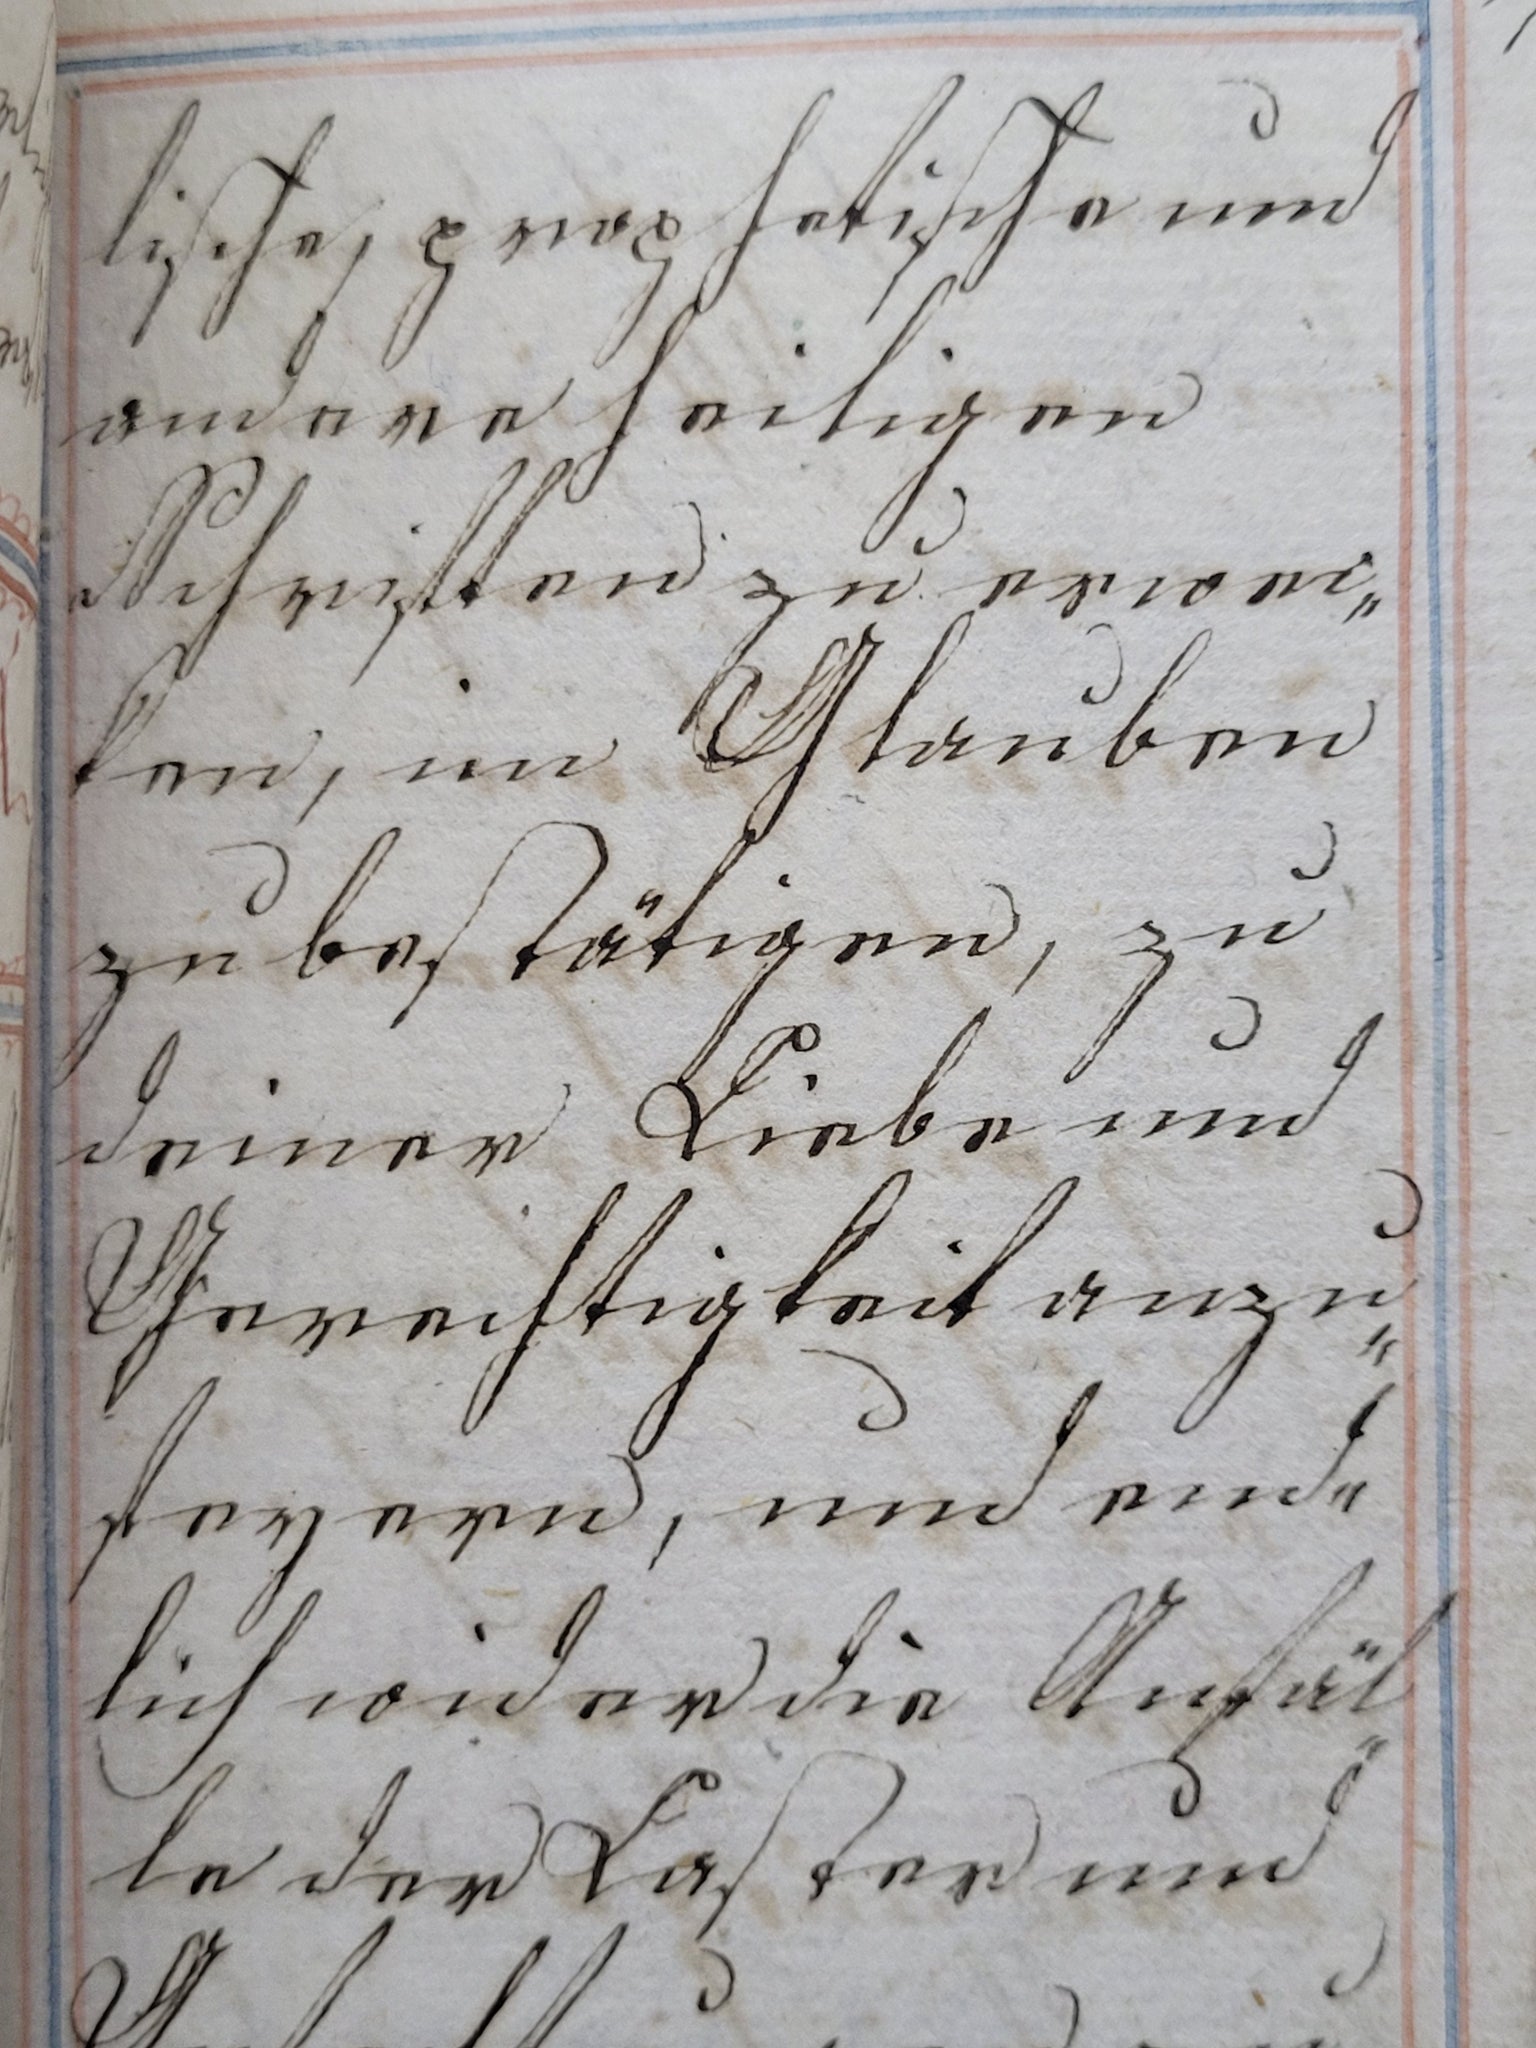 lische, prophetische und
andere heiligen
Schriften zu erwei„
ken, im Glauben
zu bestätigen, zu
deiner Liebe und
Gerechtigkeit anzu„
feyern, und end„
lich wider die Anfäl„
le der Laster und